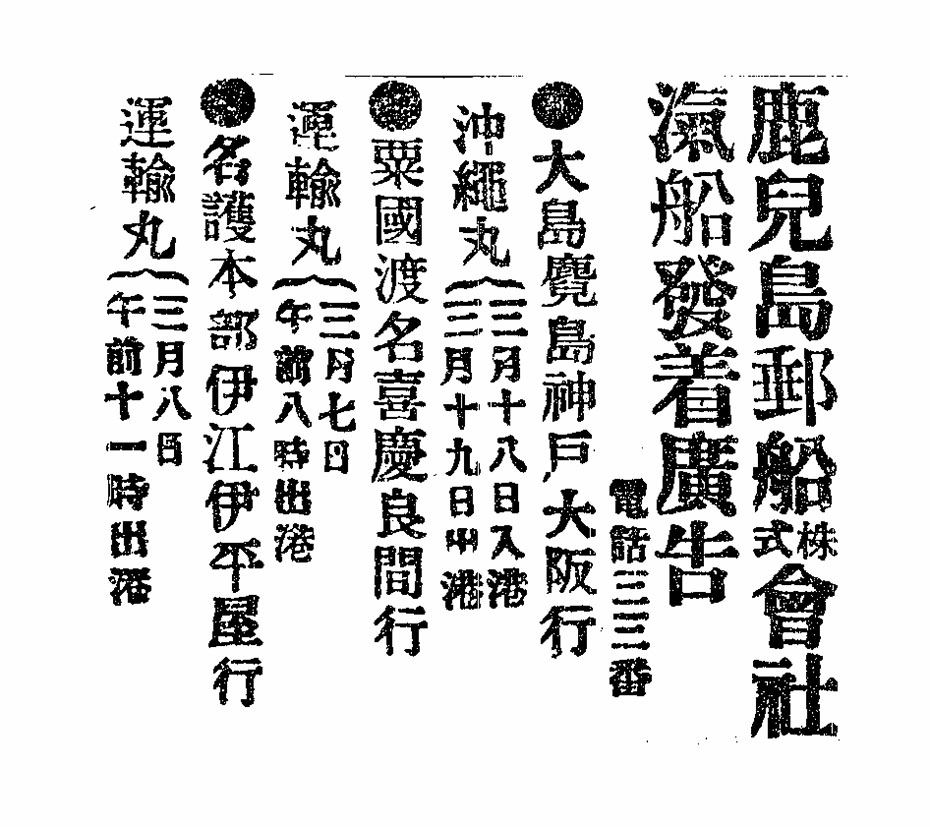 鹿兒島郵船株式會社
滊船發着廣告
電話三三番
●大島麑島神戸大阪行
沖繩丸
三月十八日入港
三月十九日出港
●粟國渡名喜慶良間行
運輸丸
三月七日
午前八時出港
●名護本部伊江伊平屋行
運輸丸
三月八日
午前十一時出港